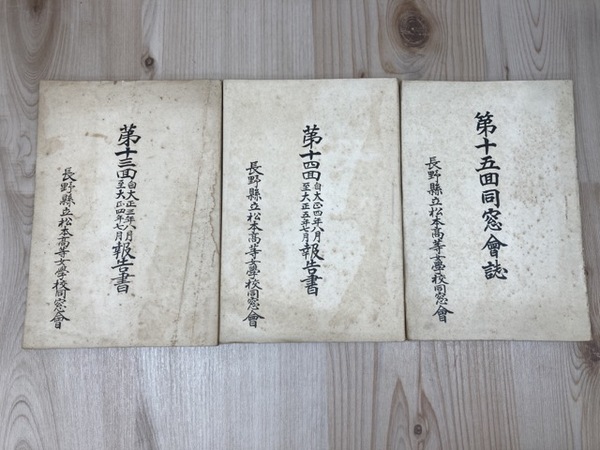 第十三回自大正三年八月至大正四年七月報告書
長野縣立松本高等女学校同窓會
第十四回自大正四年八月至大正五年七月報告書
長野縣立松本高等女學校同窓會
第十五回同窓會誌
長野縣立松本高等女學校同窓會